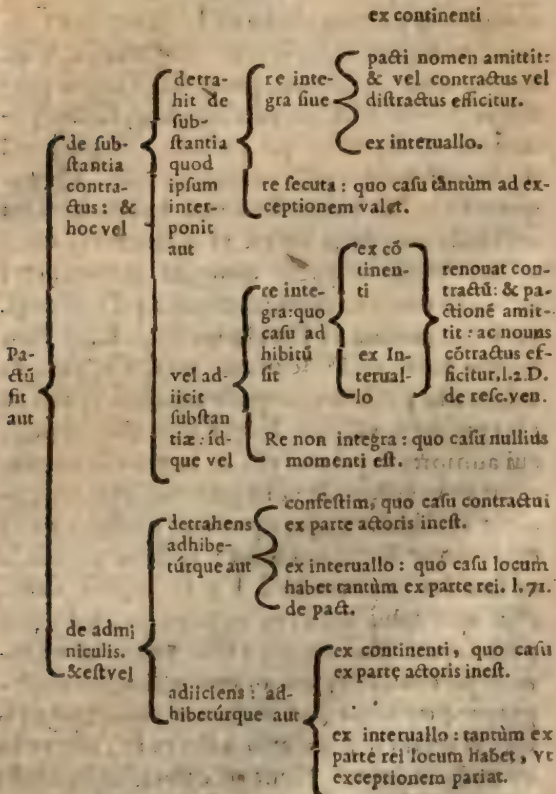 ex continenti
pacti nomen amittit:
& vel contractus vel
distractus efficitur.
ex interuallo.
detra-
hit de
sub-
stantia
quod
ipsum
inter-
ponit
aut
re inte-
gra siue
re secuta : quo casu tãntùm ad ex-
ceptionem valet.
de sub-
stantia
contra-
ctus : &
hoc vel
Pa-
ctũ
fit
aut
vel ad-
iicit
substan
tiæ : íd-
que vel
re inte-
gra:quo
casu ad
hibitũ
sit
ex cõ
tinen-
ti
ex In-
terual-
lo
renouat con-
tractũ: & pa-
ctionẽ amit-
tit : ac nouus
cõtractus ef-
ficitur.l.2.D.
de resc.ven.
Re non integra : quo casu nullius
momenti est.
de admi
niculis.
&est vel
detrahens
adhibe-
túrque aut
confestim, quo casu contractui
ex parte actoris inest.
ex interuallo : quo casu locum
habet tantùm ex parte rei. l.71.
de pact.
adiiciens : ad-
hibetúrque aut
ex continenti, quo casu
ex parte actoris inest.
ex interuallo : tantùm ex
parte rei locum habet, vt
exceptionem pariat.